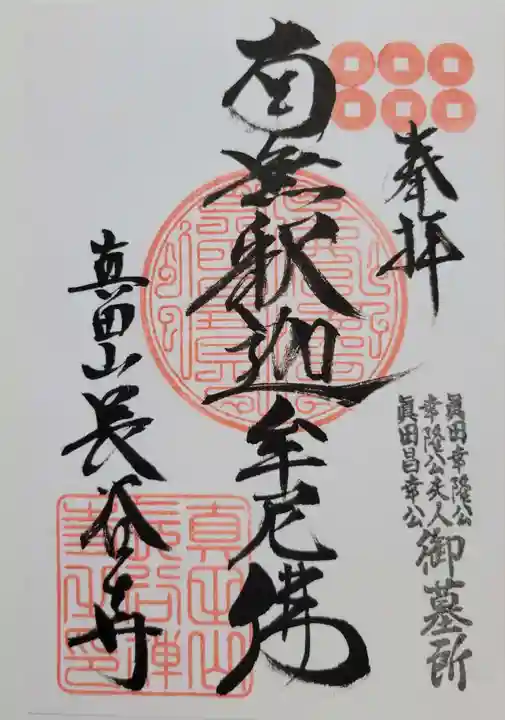 奉拝
眞田幸隆公
幸隆公夫人
眞田昌幸公
御墓所
南無釈迦牟尼佛
真田山長谷寺
真田山
長谷禅
寺之印